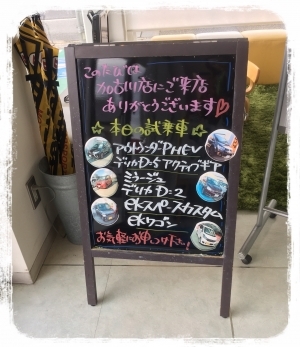 このたびは
加古川店にご来店
ありがとうございます♡
☆本日の試乗車☆
アウトランダPHEV
デリカD:5 アクティブギア
ミラージュ
デリカD:2
eKスペースカスタム
eKワゴン
お気軽にお申しつけ下さい!